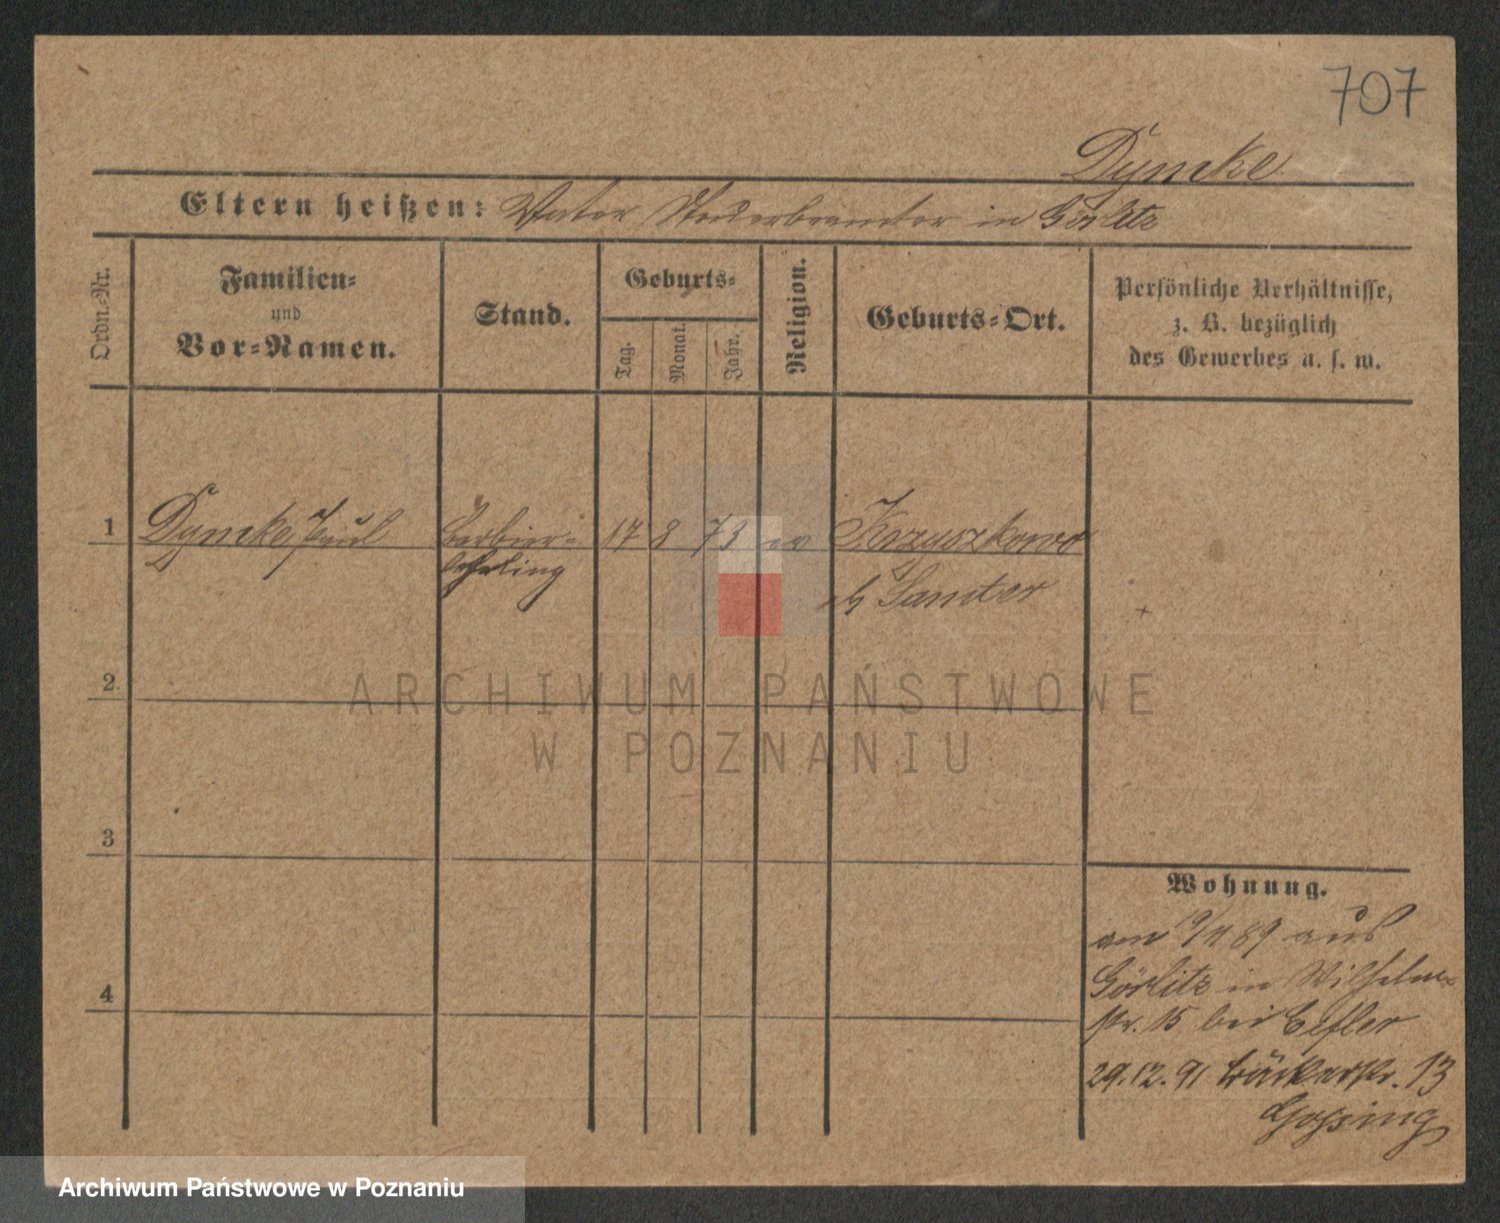 707
Dymke
Eltern heißen: Vater Steuerbeamter in Görlitz
Ordn.-Nr.
Familien-
und
Vor-Namen.
Stand.
Geburts-
Tag.
Monat.
Jahr.
Religion.
Geburts-Ort.
Persönliche Verhältnisse,
z. B. bezüglich
des Gewerbes u. s. w.
1 Dymke Paul Barbier- 17 8 73 ev Krzyszkowo
lehrling
Samter
2
ARCHIWUM PAŃSTWOWE
W POZNANIU
3
4
Wohnung.
am 9/4 89 aus
Görlitz in Wilhelm-
str. 15 bei
29.12.91 Bäckerstr. 13
Archiwum Państwowe w Poznaniu